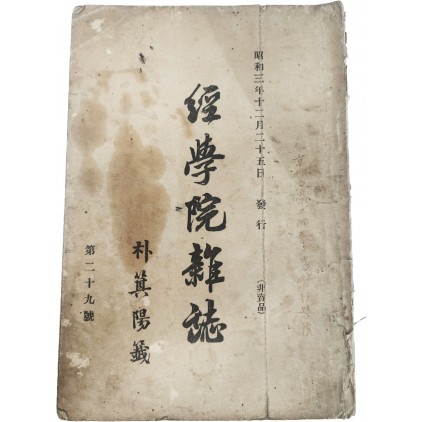 昭和三年十二月二十五日 發行 (非賣品)
經學院雜誌
朴箕陽籤
第二十九號